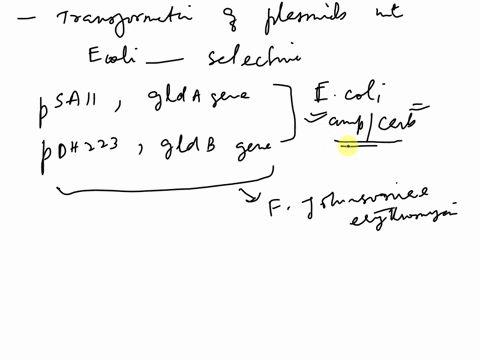 - Transformation of plasmids int
Ecoli — selective
pSA11, gldA gene
pDH223, gldB gene
E. coli
amp/carb
F. Johnsoniae
erythromycin